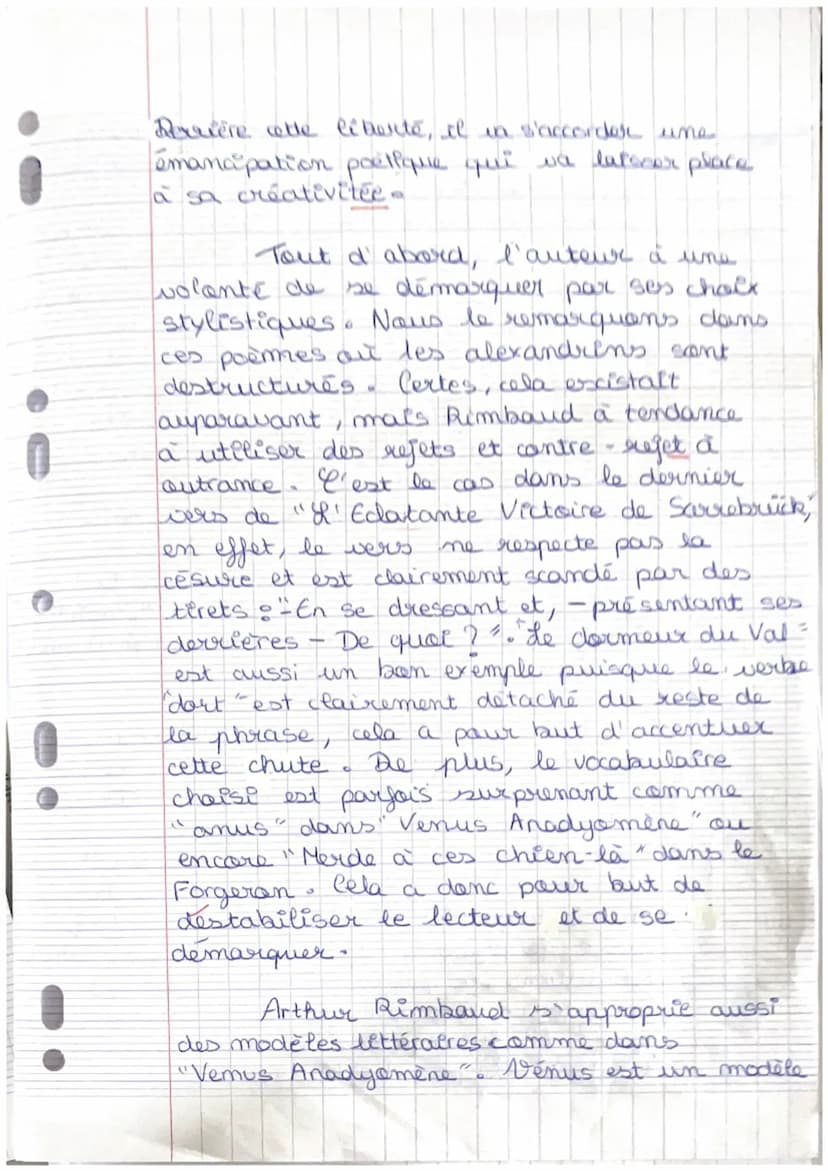 Derrière cette liberté, il va s'accorder une
émancipation poétique qui va laisser place
à sa créativitée.
Tout d'abord, l'auteur à une
volonté de se démarquer par ses choix
stylistiques. Nous le remarquons dans
ces poèmes où les alexandrins sont
destructurés. Certes, cela existait
auparavant, mais Rimbaud à tendance
à utiliser des rejets et contre-rejet à
outrance. C'est le cas dans le dernier
vers de "L'Eclatante Victoire de Sarrebrück,"
en effet, le vers ne respecte pas la
césure et est clairement scandé par des
tirets : "-En se dressant et, - présentant ses
derrières - De quoi ?". "Le dormeur du Val"
est aussi un bon exemple puisque le verbe
"dort" est clairement détaché du reste de
la phrase, cela a pour but d'accentuer
cette chute. De plus, le vocabulaire
choisi est parfois surprenant comme
"anus" dans "Venus Anadyomène" ou
encore "Merde à ces chien-là" dans le
Forgeron. Cela a donc pour but de
déstabiliser le lecteur et de se
démarquer.
Arthur Rimbaud s'approprie aussi
des modèles littéraires comme dans
"Venus Anadyomène". Vénus est un modèle